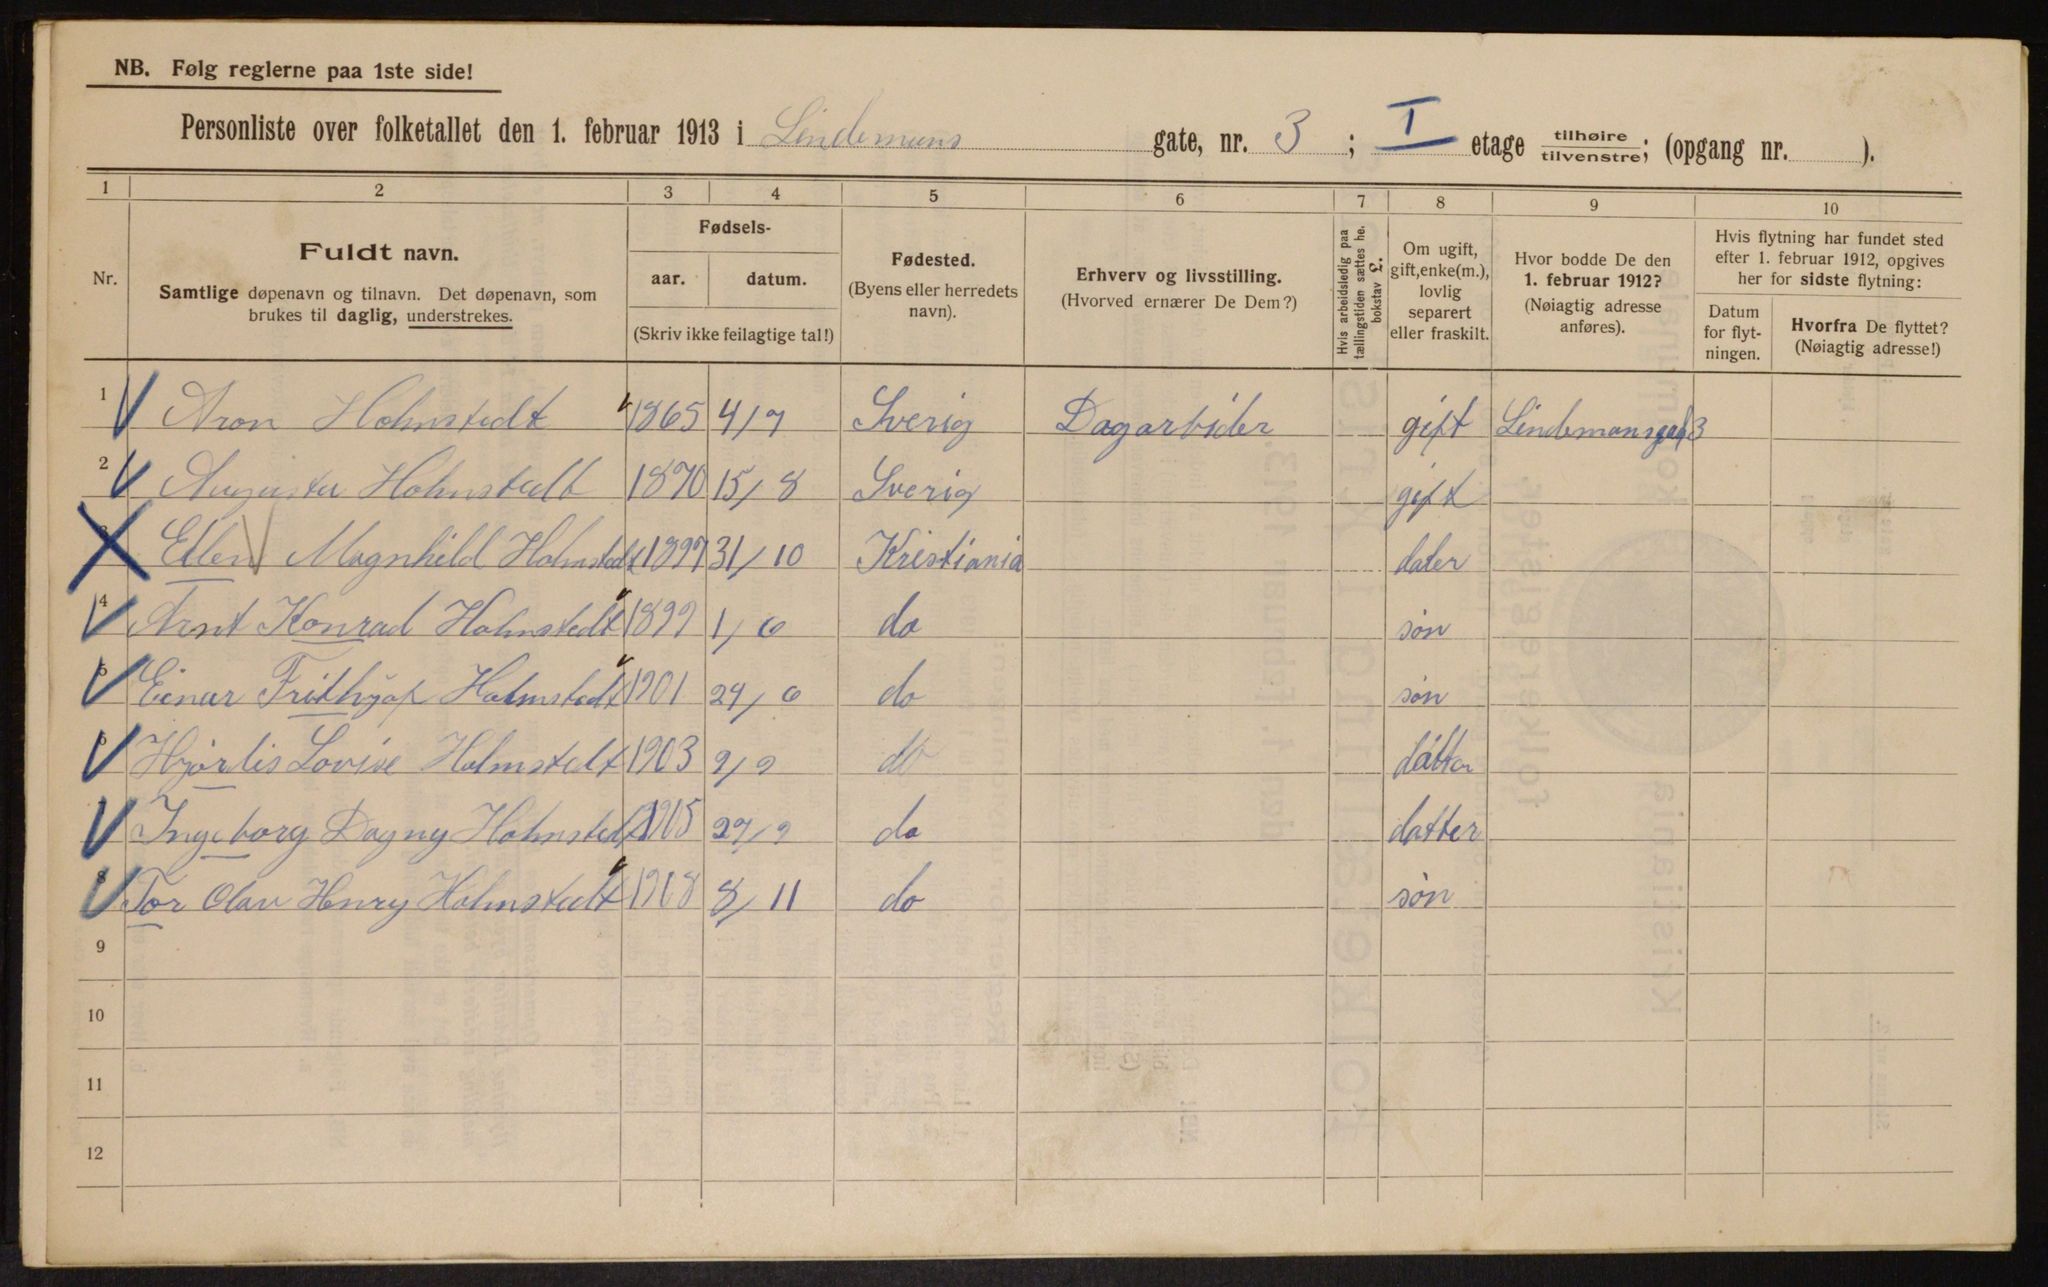 NB. Følg reglerne paa 1ste side!
Personliste over folketallet den 1. februar 1913 i Lindemans gate, nr. 3; I etage tilhøire/tilvenstre; (opgang nr. ).
1 2 3 4 5 6 7 8 9 10
Nr.
Fuldt navn.
Samtlige døpenavn og tilnavn. Det døpenavn, som
brukes til daglig, understrekes.
Fødsels-
aar. datum.
(Skriv ikke feilagtige tal!)
Fødested.
(Byens eller herredets
navn).
Erhverv og livsstilling.
(Hvorved ernærer De Dem?)
Hvis arbeidsledig paa
tællingstiden sættes he.
bokstav L.
Om ugift,
gift, enke(m.),
lovlig
separert
eller fraskilt.
Hvor bodde De den
1. februar 1912?
(Nøiagtig adresse
anføres).
Hvis flytning har fundet sted
efter 1. februar 1912, opgives
her for sidste flytning:
Datum
for flyt-
ningen.
Hvorfra De flyttet?
(Nøiagtig adresse!)
1 Aron Holmstedt 1865 4/7 Sverig Dagarbider gift Lindemansgad 3
2 Augusta Holmstedt 1870 15/8 Sverig gift
3 Ellen Magnhild Holmstedt 1897 31/10 Kristiania dater
4 Arnt Konrad Holmstedt 1899 1/6 do søn
5 Einar Frithjof Holmstedt 1901 24/6 do søn
6 Hjørdis Lovise Holmstedt 1903 9/9 do datter
7 Ingeborg Dagny Holmstedt 1905 27/9 do datter
8 Tor Olav Henry Holmstedt 1908 8/11 do søn
9
10
11
12